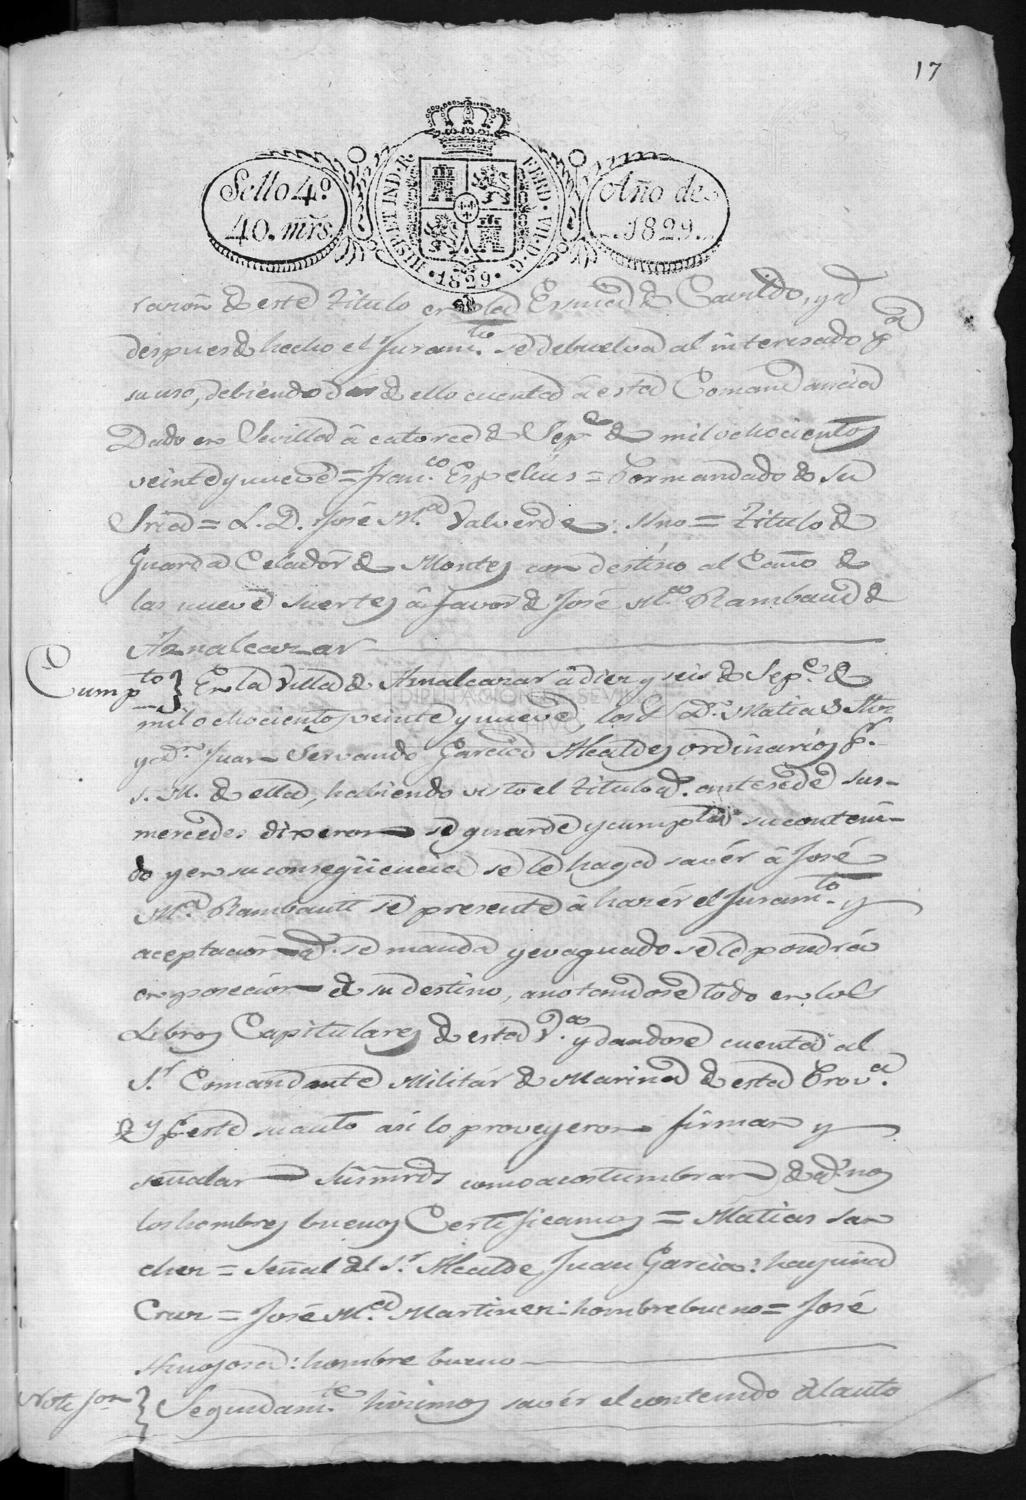 17
Sello 4.º
40. mrs.
HISP. ET IND. R.
FERD. VII. D. G.
1829
Año de
1829.
razon de este Titulo en la Escriv.ª de Cavildo, y
despues de hecho el Juram.to se debuelva al interesado p.ª
su uso, debiendo de ello cuenta á esta Comandancia
Dado en Sevilla á catorce de Sep.e de mil ochocientos
veinte y nueve = Fran.co Espelius = Por mandado de Su
Sria = L. D. José M.ª Valverde: Nno = Titulo de
Guarda Celador de Montes con destino al Caño de
las nueve suertes á favor de José M.ª Rambaud de
Aznalcazar
Cump.to } En la Villa de Aznalcazar á diez y seis de Sep.e de
mil ochocientos veinte y nueve, los S.s D.n Matias
y D.n Juan Servando Garcia Alcaldes ordinarios p.r
S. M. de ella, habiendo visto el titulo q. antesede sus
mercedes dixeron se guarde y cumpla su conteni-
do y en su conseqüencia se le haga savér á José
M.ª Rambautt se presente á hazér el Juram.to y
aceptacion q. se manda y evaquado se le pondrá
en posecion de su destino, anotandose todo en los
Libros Capitulares de esta V.ª y dandose cuenta al
S.r Comandante Militár de Marina de esta Prov.ª
y p.r este su auto asi lo proveyeron firman y
señalan Sus mrds como acostumbran de q. nos
los hombres buenos Certificamos = Matias San
chez = Señal del S.r Alcalde Juan Garcia: hay una
Cruz = José M.ª Martinez: hombre bueno = José
Hinojosa: hombre bueno
Notif.on } Seguidam.te hicimos savér el contenido del auto
DIPUTACION DE SEVILLA
ARCHIVO